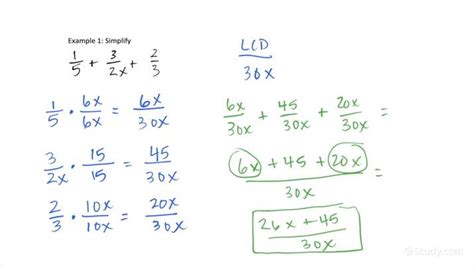 Example 1: Simplify
1/5 + 3/2x + 2/3
1/5 · 6x/6x = 6x/30x
3/2x · 15/15 = 45/30x
2/3 · 10x/10x = 20x/30x
LCD
30x
6x/30x + 45/30x + 20x/30x =
6x + 45 + 20x / 30x =
26x + 45 / 30x
Study.com